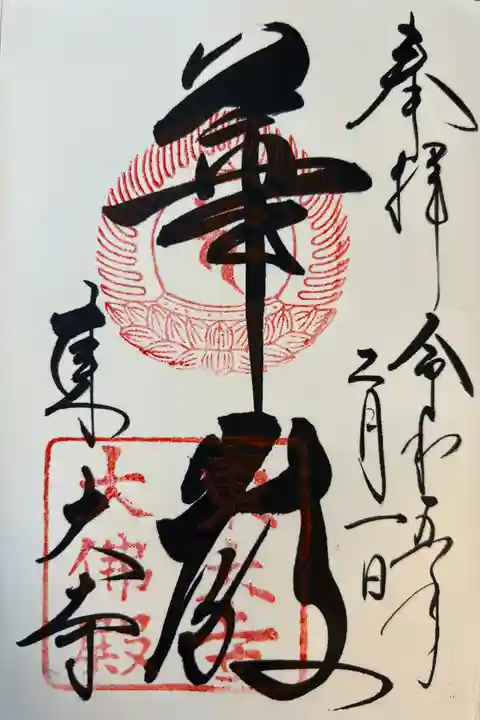 奉拝
令和五年
二月一日
華厳
東大寺
東大寺
大佛殿